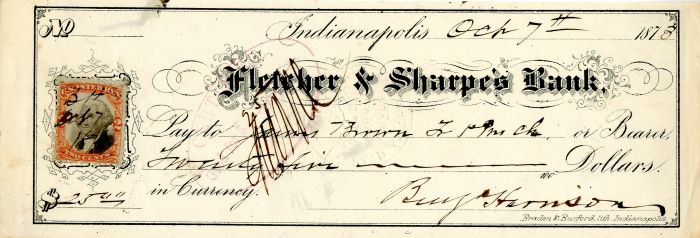 No
Indianapolis Oct 7th 1873
Fletcher & Sharpe's Bank,
Pay to James Brown or Bearer,
Twenty five Dollars.
100
in Currency.
$ 25 00
Benj Harrison
Braden & Burford, lith. Indianapolis
TWO CENTS